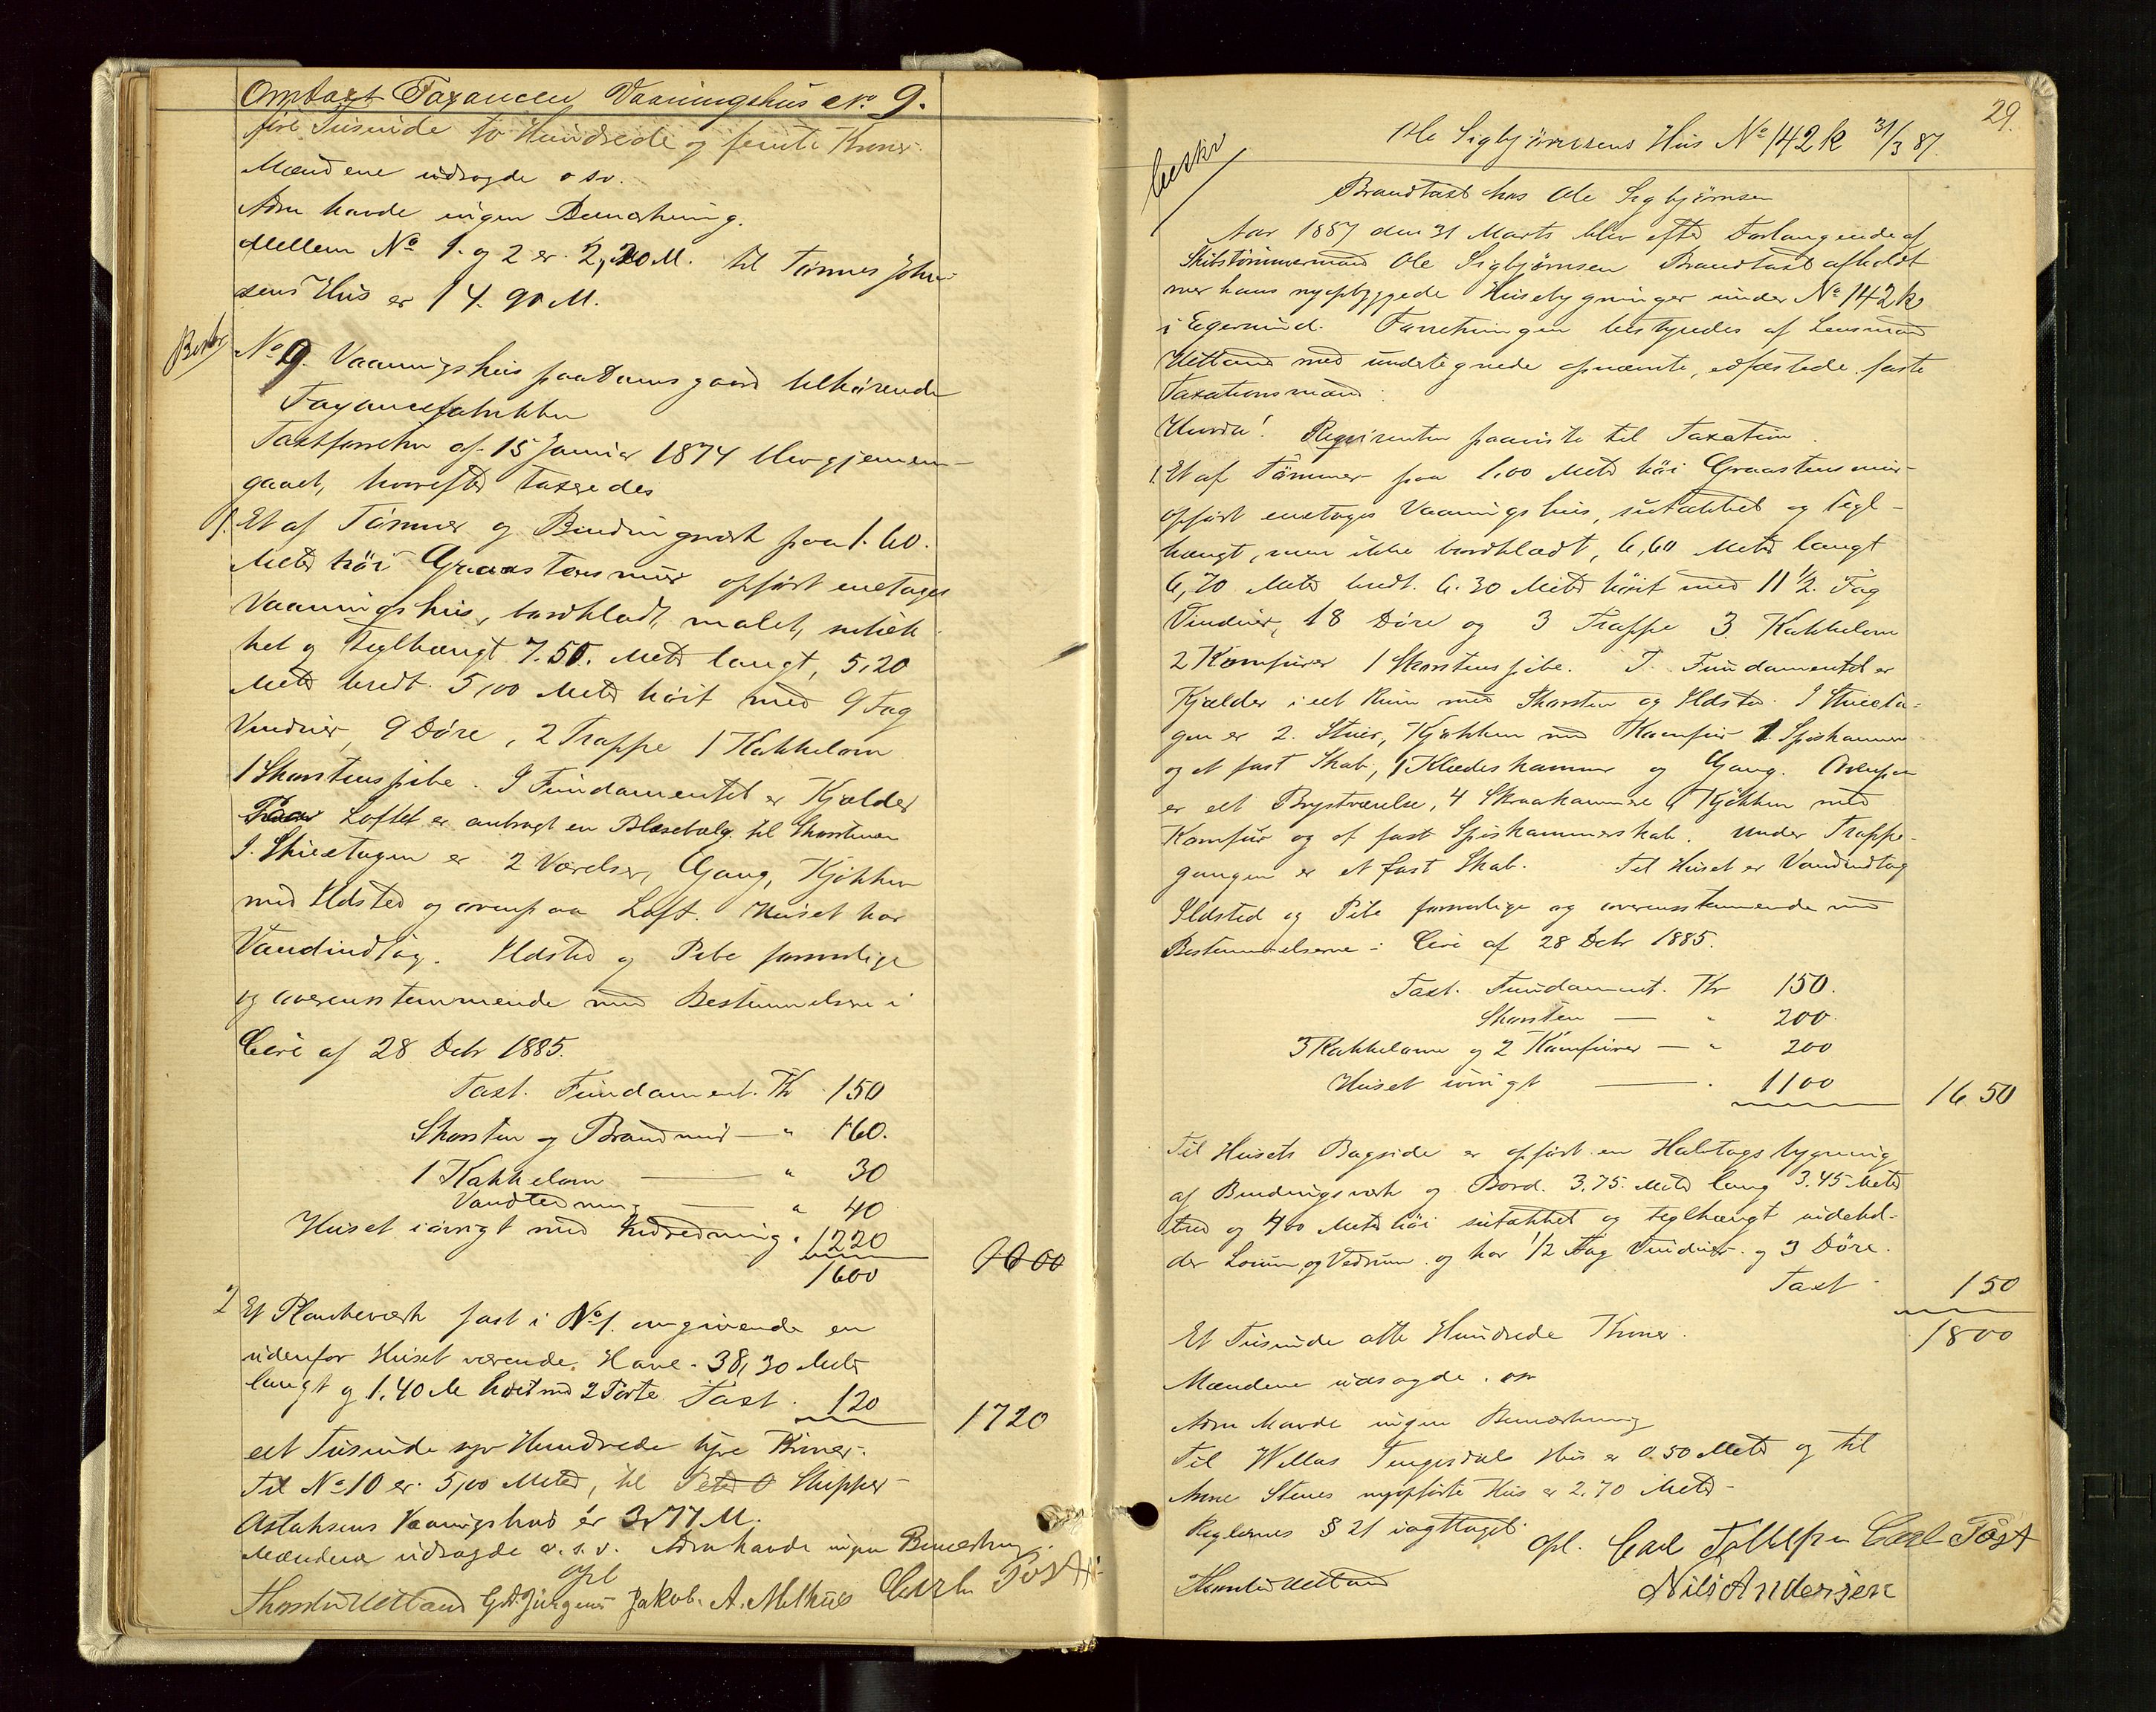 Omtaxt Fayancen Vaaningshus No. 9.
fire Tusinde to Hundrede og femti Kroner.
Mændene udsagde o sv.
Adm havde ingen Bemærkning.
Mellem No 1. og 2 er 2,20 M. til Tønnes John-
sens Hus er 14.90 M.
Beskr
No 9. Vaaningshus paa Damsgaard tilhørende
Fayancefabrikken
Taxtforretn af 15 Januar 1874 blev gjennem-
gaaet, hvorefter taxeredes
1. Et af Tømmer og Bindingsværk paa 1.60.
Meter høi Graastensmur opført enetages
Vaaningshus, bordklædt, malet, sutæk-
ket og Teglhængt 7.50. Meter langt, 5,20
Meter bredt. 5,00 Meter høit med 9 Fag
Vinduer, 9 Døre, 2 Trappe 1 Kakkelovn
1 Skorstenspibe. I Fundamentet er Kjælder
Paa Loftet er anbragt en Blæsebælg til Skorstenen
I Stuetagen er 2 Værelser, Gang, Kjøkken
med Ildsted og ovenpaa Loft. Huset har
Vandindlæg. Ildsted og Pibe forsvarlige
og overensstemmende med Bestemmelserne i
Circ af 28 Debr 1885.
Taxt. Fundament. Kr 150
Skorsten og Brandmur — " 160.
1 Kakkelovn — " 30
Vandledning — " 40
Huset iøvrigt med Indredning " 1220
1600 1600
2 Et Plankeværk fast i No 1. omgivende en
udenfor Huset værende Have. 38,30 Meter
langt og 1.40 M høit med 2 Porte Taxt. 120 1720
eet Tusinde syv Hundrede tyve Kroner.
Til No 10 er 5,00 Meter, til Peder O Skipper
Aslaksens Vaaningshus er 3,77 M.
Mændene udsagde o. s. v. Adm havde ingen Bemærkning.
opl
Thorstein Uetland G A Jürgens Jakob. A. Melhus Carl Tøst
29.
Ole Sigbjørnsens Hus No 142 k 31/3 87.
beskr
Brandtaxt hos Ole Sigbjørnsen
Aar 1887 den 31 Marts blev efter Forlangende af
Skibstømmermand Ole Sigbjørnsen Brandtaxt afholdt
over hans nyopbyggede Husebygninger under No 142 k
i Egersund. Forretningen bestyredes af Lensmand
Uetland med undertegnede opnævnte, edfæstede faste
Taxationsmænd:
Hvorda! Reqvirenten paaviste til Taxation.
1. Et af Tømmer paa 1,00 Meter høi Graastensmur
opført enetages Vaaningshus, sutækket og Tegl-
hængt, men ikke bordklædt, 6,60 Meter langt
6,70 Meter bredt. 6.30 Meter høit med 11 1/2. Fag
Vinduer, 18 Døre og 3 Trappe 3. Kakkelovn
2 Komfurer 1 Skorstenspibe. I Fundamentet er
Kjælder i eet Rum med Skorsten og Ildsted. I Stueeta-
gen er 2. Stuer, Kjøkken med Komfur 1 Spiskammer
og et fast Skab, 1 Klædeskammer og Gang. Ovenpaa
er eet Brystværelse, 4 Skraakammere, Kjøkken med
Komfur og et fast Spiskammerskab. Under Trappe-
gangen er et fast Skab. Til Huset er Vandindlæg
Ildsted og Pibe forsvarlige og overensstemmende med
Bestemmelserne i Circ af 28 Debr 1885.
Taxt. Fundament. Kr 150.
Skorsten — " 200.
3 Kakkelovne og 2 Komfurer — " 200
Huset øvrigt — " 1100 1650
Til Husets Bagside er opført en Halvtagsbygning
af Bindingsværk og Bord. 3.75. Meter lang 3.45 Meter
bred og 4,00 Meter høi sutækket og teglhængt indehol-
der Loium og Vedrum og har 1/2 Fag Vinduer og 3 Døre.
Taxt 150
Et Tusinde otte Hundrede Kroner. 1800
Mændene udsagde. osv
Adm havde ingen Bemærkning
Til Willas Tengesdals Hus er 0.50 Meter og til
Anne Stenes nyopførte Hus er 2.70 Meter
Reglernes § 21 iagttaget.
opl. Carl Tollefsen Carl Tøst
Thorstein Uetland Nils Andersen